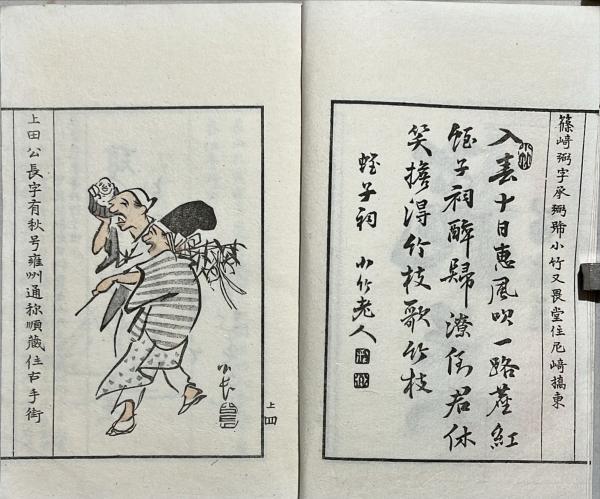 篠崎弼字承弼号小竹又畏堂住尼崎橋東
入春十日恵風吹一路塵紅
蛭子祠酔歸潦倒君休
笑擔得竹枝歌竹枝
蛭子祠 小竹老人
上田公長字有秋号雍州通称順蔵住古手街
公長
上四